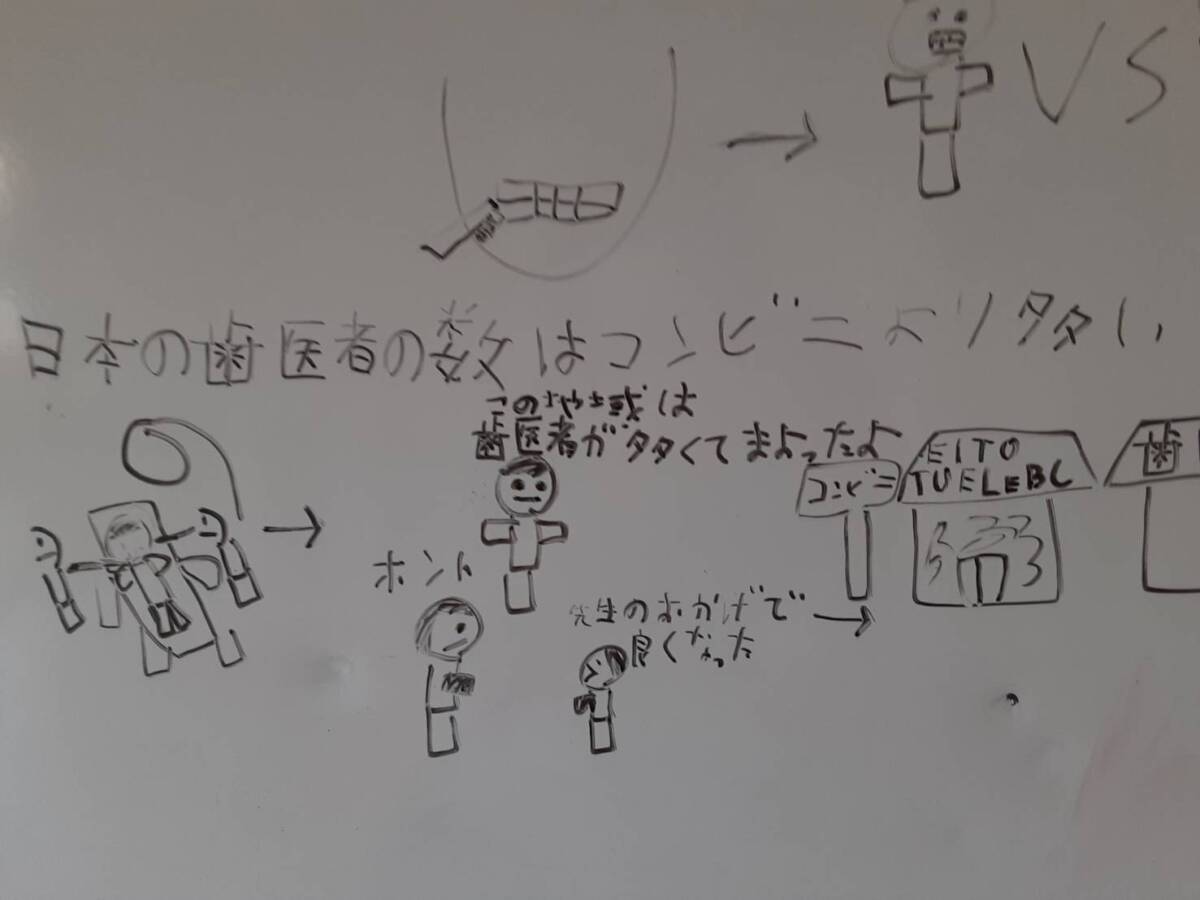 VS
日本の歯医者の数はコンビニより多い
この地域は
歯医者が多くてまよったよ
コンビニ
EITO
TUELEBC
歯
ホント
先生のおかげで
良くなった